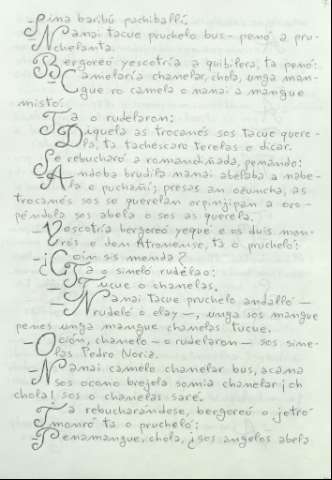 —Sina baribú pachiballí.
—Namai tacue pruchelo bus— penó a pru-
chelanta.
Bergoreó yescotría a quibilera, ta penó:
—Camelaría chanelar, chola, unga man-
gue ro camela o nanai a mangue
misto.
Ta o rudelaron:
—Diquela as trocanés sos tacue quere-
la, ta tachescaro terelas e dicar.
Se rebucharó a romandiñada, penando:
—Andoba brudila namai abelaba a nabe-
la e puchañí; presas an ozuncha, as
trocanés sos se querelan orpinjipan a oro-
péndola sos abela o sos as querela.
—Yescotría bergoreó yeque e os duis mon-
rós e den Atronense, ta o pruchelo:
—¿Coin sis menda?
Ta o sineló rudelao:
—Tucue o chanelas.
—Namai tacue pruchelo andalló —
rudeló o elay —, unga sos mangue
penes unga mangue chanelas tucue.
—Oción, chanelo — o rudelaron — sos sine-
las Pedro Noria.
—Namai camelo chanelar bus, acana
sos ocono brejela somia chanelar ¡oh
chola! sos o chanelas saré.
Ta rebucharándose, bergoreó o jetró
monró ta o pruchelo:
—Penamangue, chola, ¿sos angelos abela